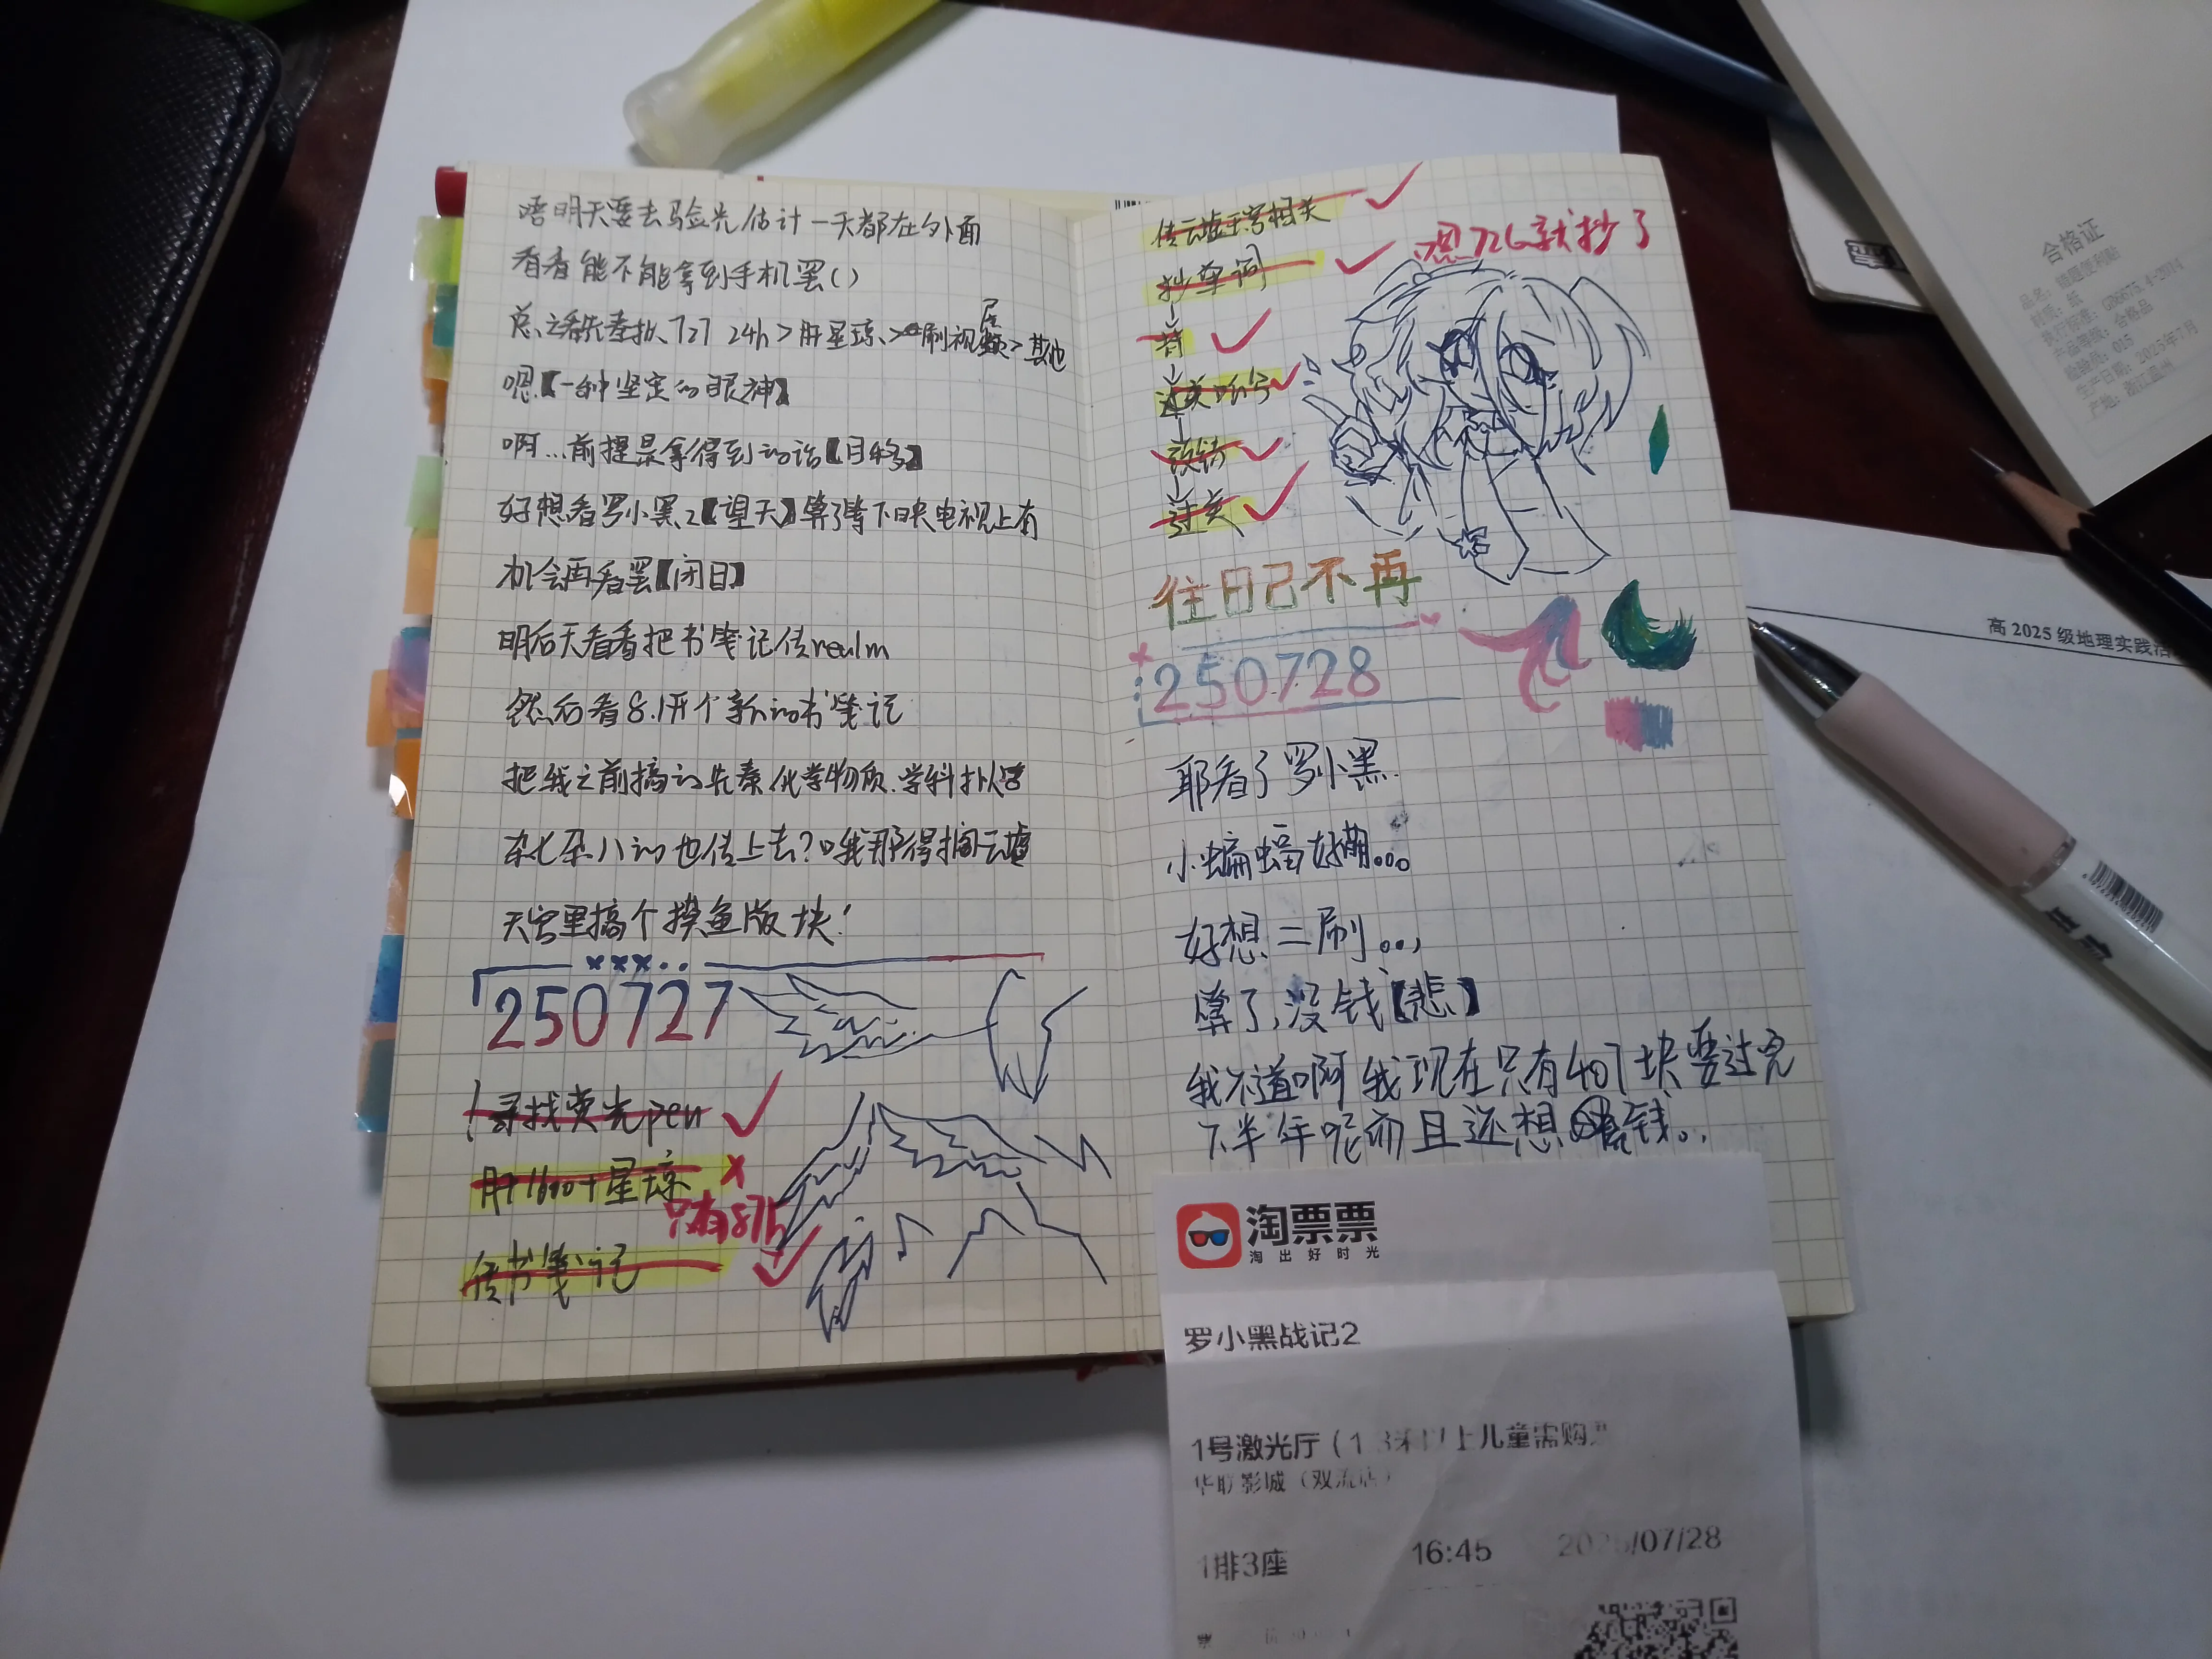 唔明天要去验光估计一天都在外面
看看能不能拿到手机罢()
总之 727 24h>肝星琼>刷视频>其他
嗯【一种坚定的眼神】
啊…前提是拿得到的话【目移】
好想看罗小黑2【望天】算了等下日央电视上有
机会再看罢【闭目】
明后天看看把书笺记传realm
然后看8.1开个新的书笺记
把我之前搞的先秦.化学物质.学科拟
杂七杂八的也传上去?哦我那得搁云墟
天宫里搞个摸鱼版块!
250727
!寻找荧光pen
肝1600+星琼
只有871
传书笺记
传云墟天宫相关
抄单词
嗯726就抄了
背
过关
改错
过关
往日已不再
250728
耶看了罗小黑
小蝙蝠好萌...
好想二刷...
算了,没钱【悲】
我不道啊我现在只有407块要过完
下半年呢而且还想钱..
淘票票
淘出好时光
罗小黑战记2
1号激光厅(1.3米以上儿童需购票
华联影城(双流店)
1排3座
16:45
2025/07/28
合格证
品名:
材质:纸
产品等级:合格品
检验员:015
生产日期:2025年7月
产地:浙江温州
高2025级地理实践活